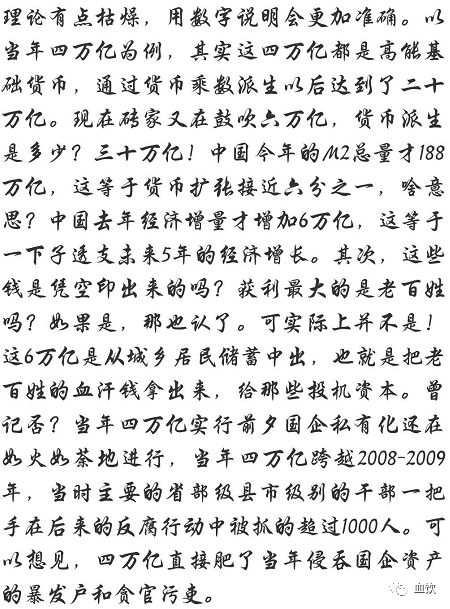 理论有点枯燥，用数字说明会更加准确。以
当年四万亿为例，其实这四万亿都是高能基
础货币，通过货币乘数派生以后达到了二十
万亿。现在砖家又在鼓吹六万亿，货币派生
是多少？三十万亿！中国今年的M2总量才188
万亿，这等于货币扩张接近六分之一，啥意
思？中国去年经济增量才增加6万亿，这等于
一下子透支未来5年的经济增长。其次，这些
钱是凭空印出来的吗？获利最大的是老百姓
吗？如果是，那也认了。可实际上并不是！
这6万亿是从城乡居民储蓄中出，也就是把老
百姓的血汗钱拿出来，给那些投机资本。曾
记否？当年四万亿实行前夕国企私有化还在
如火如荼地进行，当年四万亿跨越2008-2009
年，当时主要的省部级县市级别的干部一把
手在后来的反腐行动中被抓的超过1000人。可
以想见，四万亿直接肥了当年侵吞国企资产
的暴发户和贪官污吏。
血饮